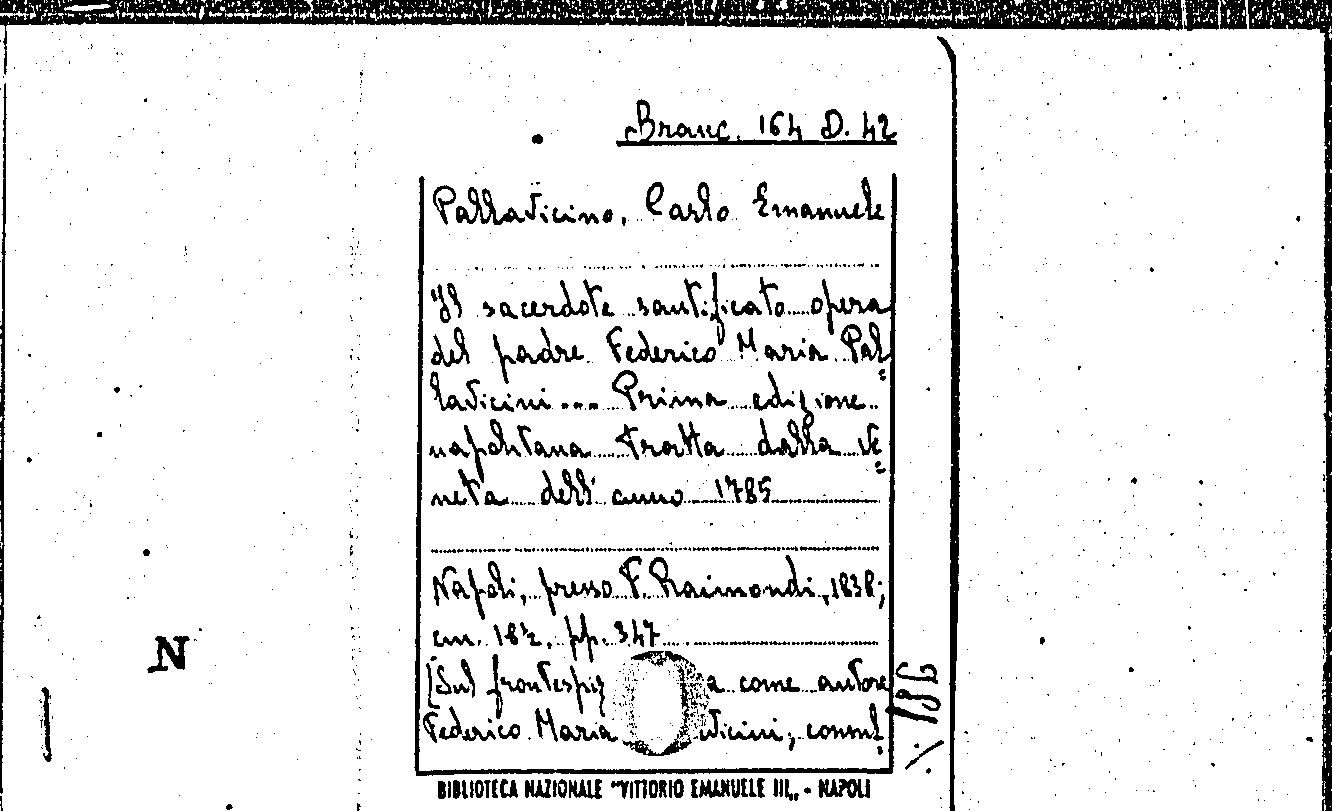 Branc. 164 D. 42
Pallavicino, Carlo Emanuele
Il sacerdote santificato opera
del padre Federico Maria Pal=
lavicini... Prima edizione
napolitana tratta dalla ve=
neta dell'anno 1785
Napoli, presso F. Raimondi, 1838;
cm. 18½. pp. 347
[Sul frontespiz a come autore
Federico Maria vicini; consul
BIBLIOTECA NAZIONALE "VITTORIO EMANUELE III„ - NAPOLI
N